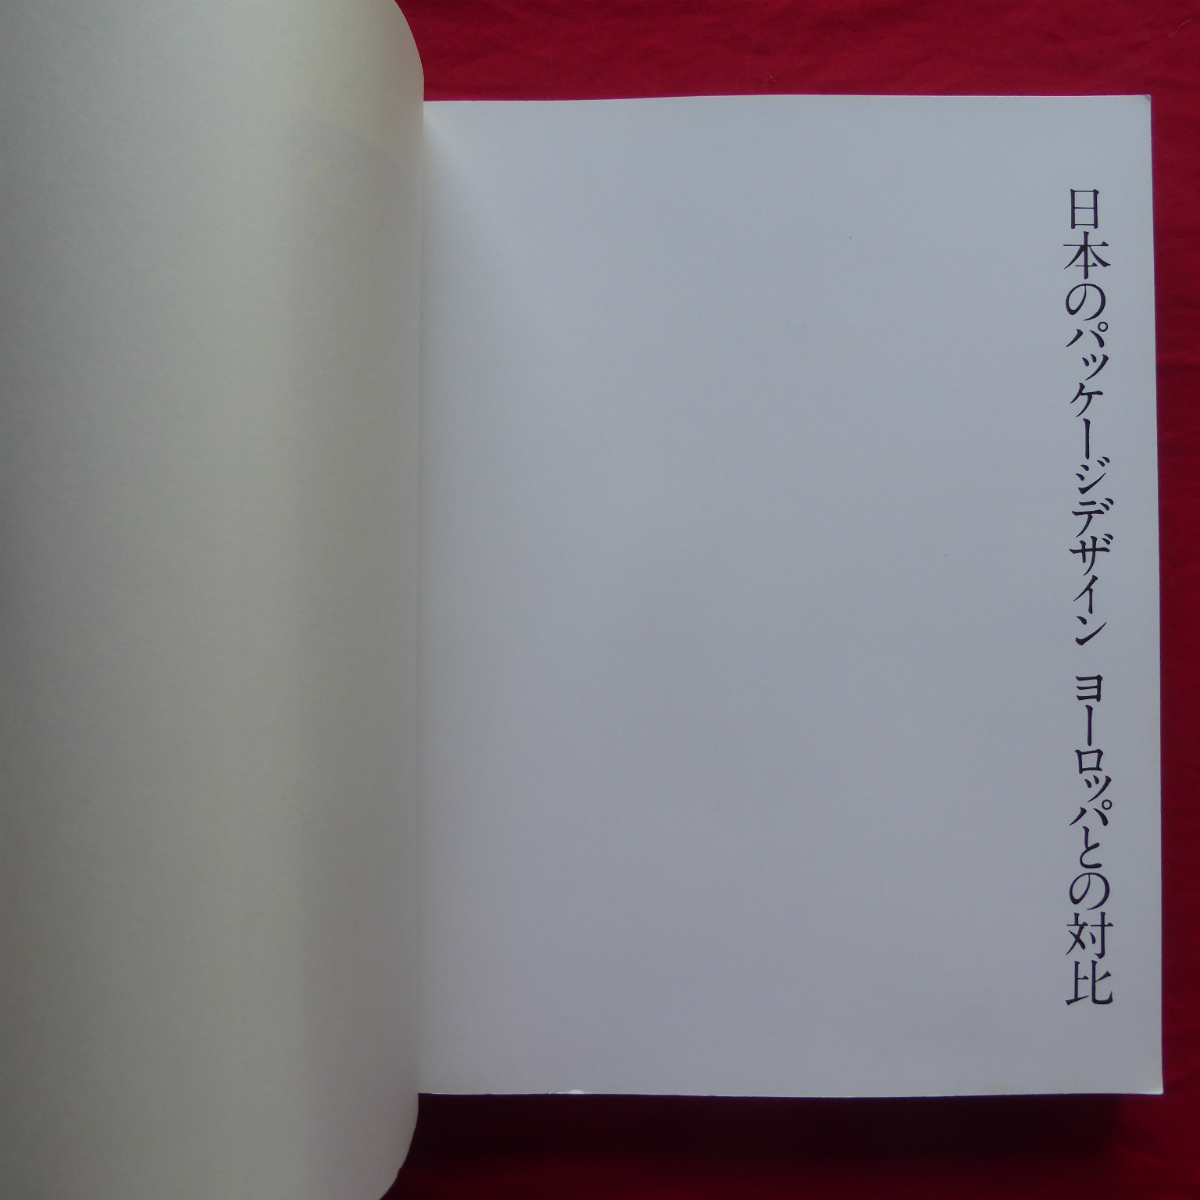 日本のパッケージデザイン ヨーロッパとの対比